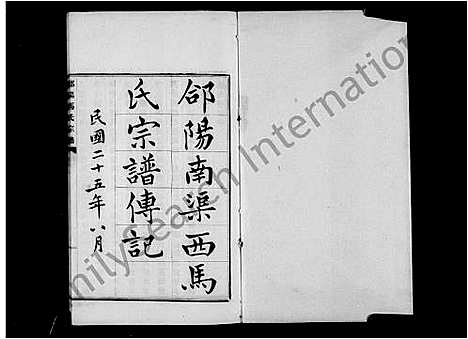 郃陽南渠西馬
氏宗譜傳記
民國二十五年八月
FamilySearch International